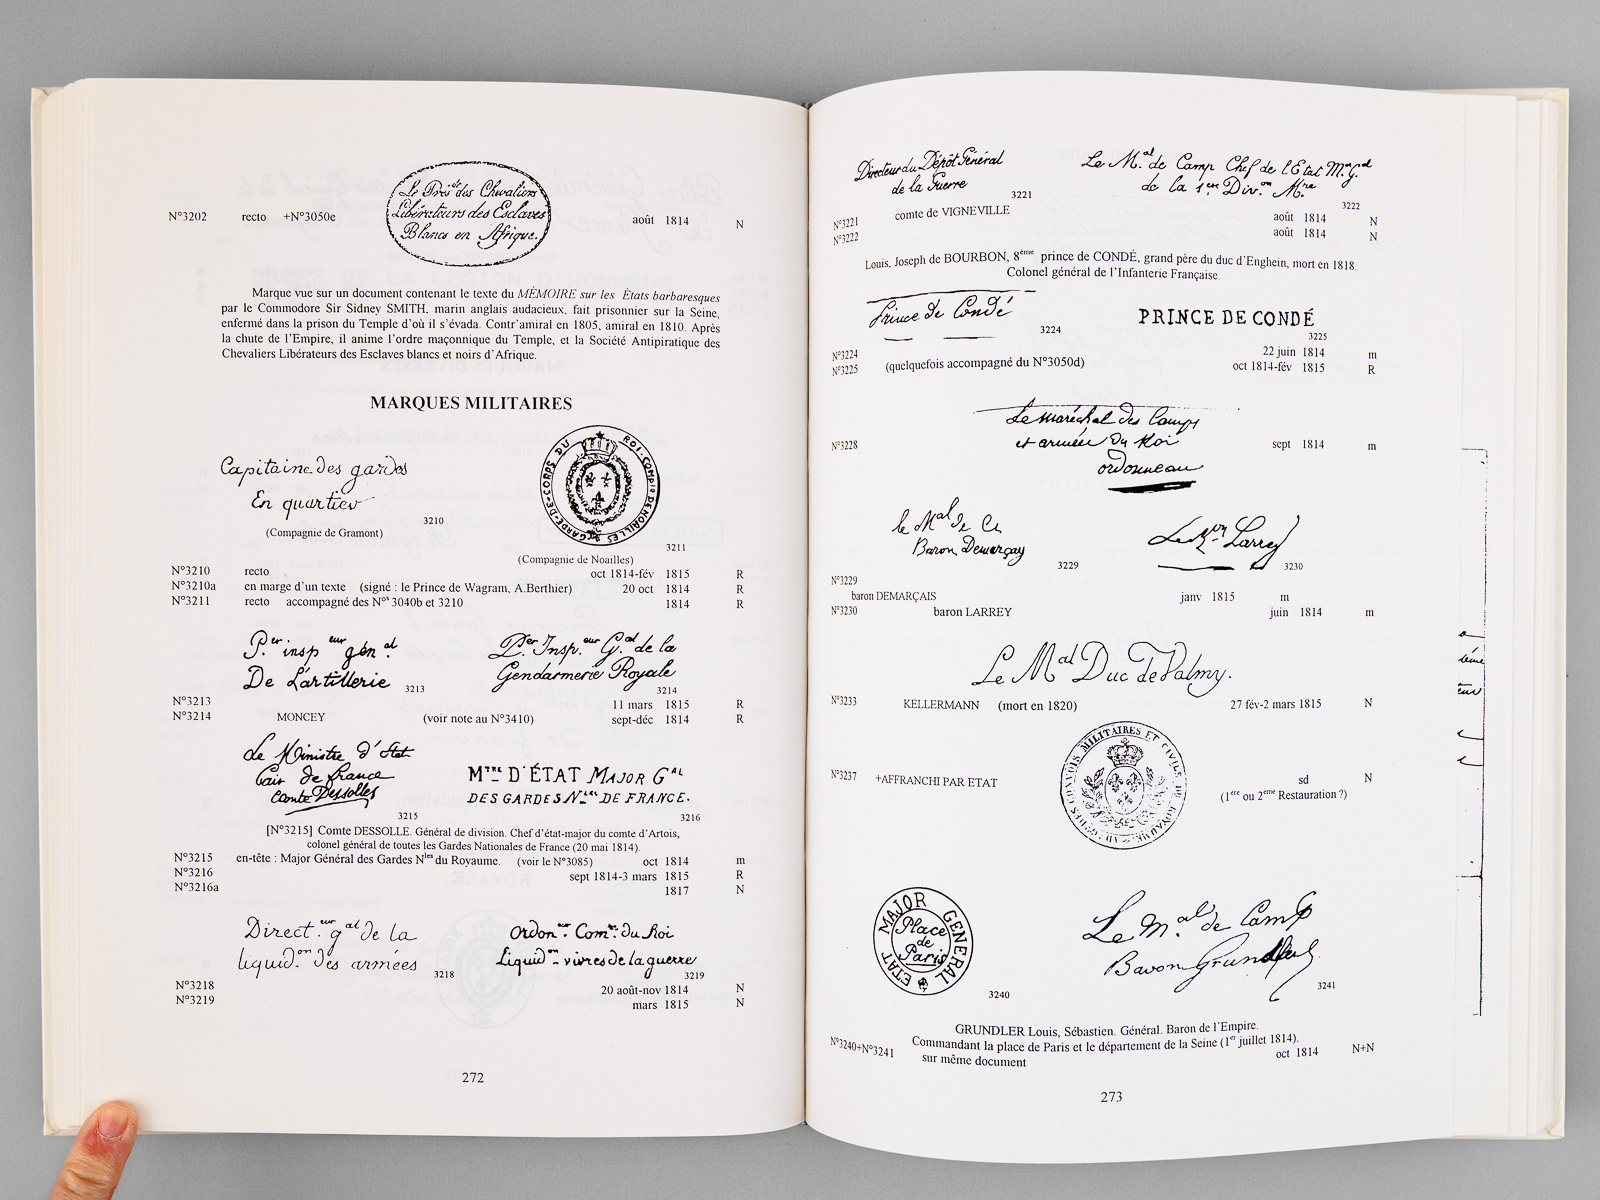 Le Prés.dt des Chevaliers
Libérateurs des Esclaves
Blancs en Afrique.
N°3202 recto +N°3050e août 1814 N
Marque vue sur un document contenant le texte du MÉMOIRE sur les États barbaresques
par le Commodore Sir Sidney SMITH, marin anglais audacieux, fait prisonnier sur la Seine,
enfermé dans la prison du Temple d'où il s'évada. Contr'amiral en 1805, amiral en 1810. Après
la chute de l'Empire, il anime l'ordre maçonnique du Temple, et la Société Antipiratique des
Chevaliers Libérateurs des Esclaves blancs et noirs d'Afrique.
MARQUES MILITAIRES
Capitaine des gardes
En quartier
3210
(Compagnie de Gramont)
GARDE-DE-CORPS DU ROI-COMPie DE NOAILLES
3211
(Compagnie de Noailles)
N°3210 recto oct 1814-fév 1815 R
N°3210a en marge d'un texte (signé : le Prince de Wagram, A.Berthier) 20 oct 1814 R
N°3211 recto accompagné des Nos 3040b et 3210 1814 R
P.er insp.eur gén.al
De L'artillerie 3213
P.er Insp.eur G.al de la
Gendarmerie Royale
3214
N°3213 11 mars 1815 R
N°3214 MONCEY (voir note au N°3410) sept-déc 1814 R
Le Ministre d'Etat
Pair de france
Comte Dessolles
3215
MTRE D'ÉTAT MAJOR GAL
DES GARDES N.LES DE FRANCE.
3216
[N°3215] Comte DESSOLLE. Général de division. Chef d'état-major du comte d'Artois,
colonel général de toutes les Gardes Nationales de France (20 mai 1814).
N°3215 en-tête : Major Général des Gardes Nles du Royaume. (voir le N°3085) oct 1814 m
N°3216 sept 1814-3 mars 1815 R
N°3216a 1817 N
Direct.eur g.al de la
liquid.on des armées 3218
Ordon.eur Com.re du Roi
Liquid.on vivres de la guerre
3219
N°3218 20 août-nov 1814 N
N°3219 mars 1815 N
272
Directeur du Dépôt Général
de la Guerre
3221
Le M.al de Camp Chef de l'Etat M.or G.al
de la 1ere Div.on M.re
3222
N°3221 comte de VIGNEVILLE août 1814 N
N°3222 août 1814 N
Louis, Joseph de BOURBON, 8ème prince de CONDÉ, grand père du duc d'Enghein, mort en 1818.
Colonel général de l'Infanterie Française.
Prince de Condé
3224
PRINCE DE CONDÉ
3225
N°3224 22 juin 1814 m
N°3225 (quelquefois accompagné du N°3050d) oct 1814-fév 1815 R
Le maréchal des Camps
et armées du Roi
ordonneau
N°3228 sept 1814 m
le Mal de Ca
Baron Demarçay
3229
Le Bon Larrey
3230
N°3229
baron DEMARÇAIS janv 1815 m
N°3230 baron LARREY juin 1814 m
Le Mal Duc de Valmy.
N°3233 KELLERMANN (mort en 1820) 27 fév-2 mars 1815 N
DES CONVOIS MILITAIRES ET CIVILS DU ROYAUME
N°3237 +AFFRANCHI PAR ETAT sd N
(1ère ou 2ème Restauration ?)
ETAT MAJOR GENERAL
Place
de
Paris
3240
Le M.al de Camp
Baron Grundler
3241
GRUNDLER Louis, Sébastien. Général. Baron de l'Empire.
Commandant la place de Paris et le département de la Seine (1er juillet 1814).
N°3240+N°3241 sur même document oct 1814 N+N
273